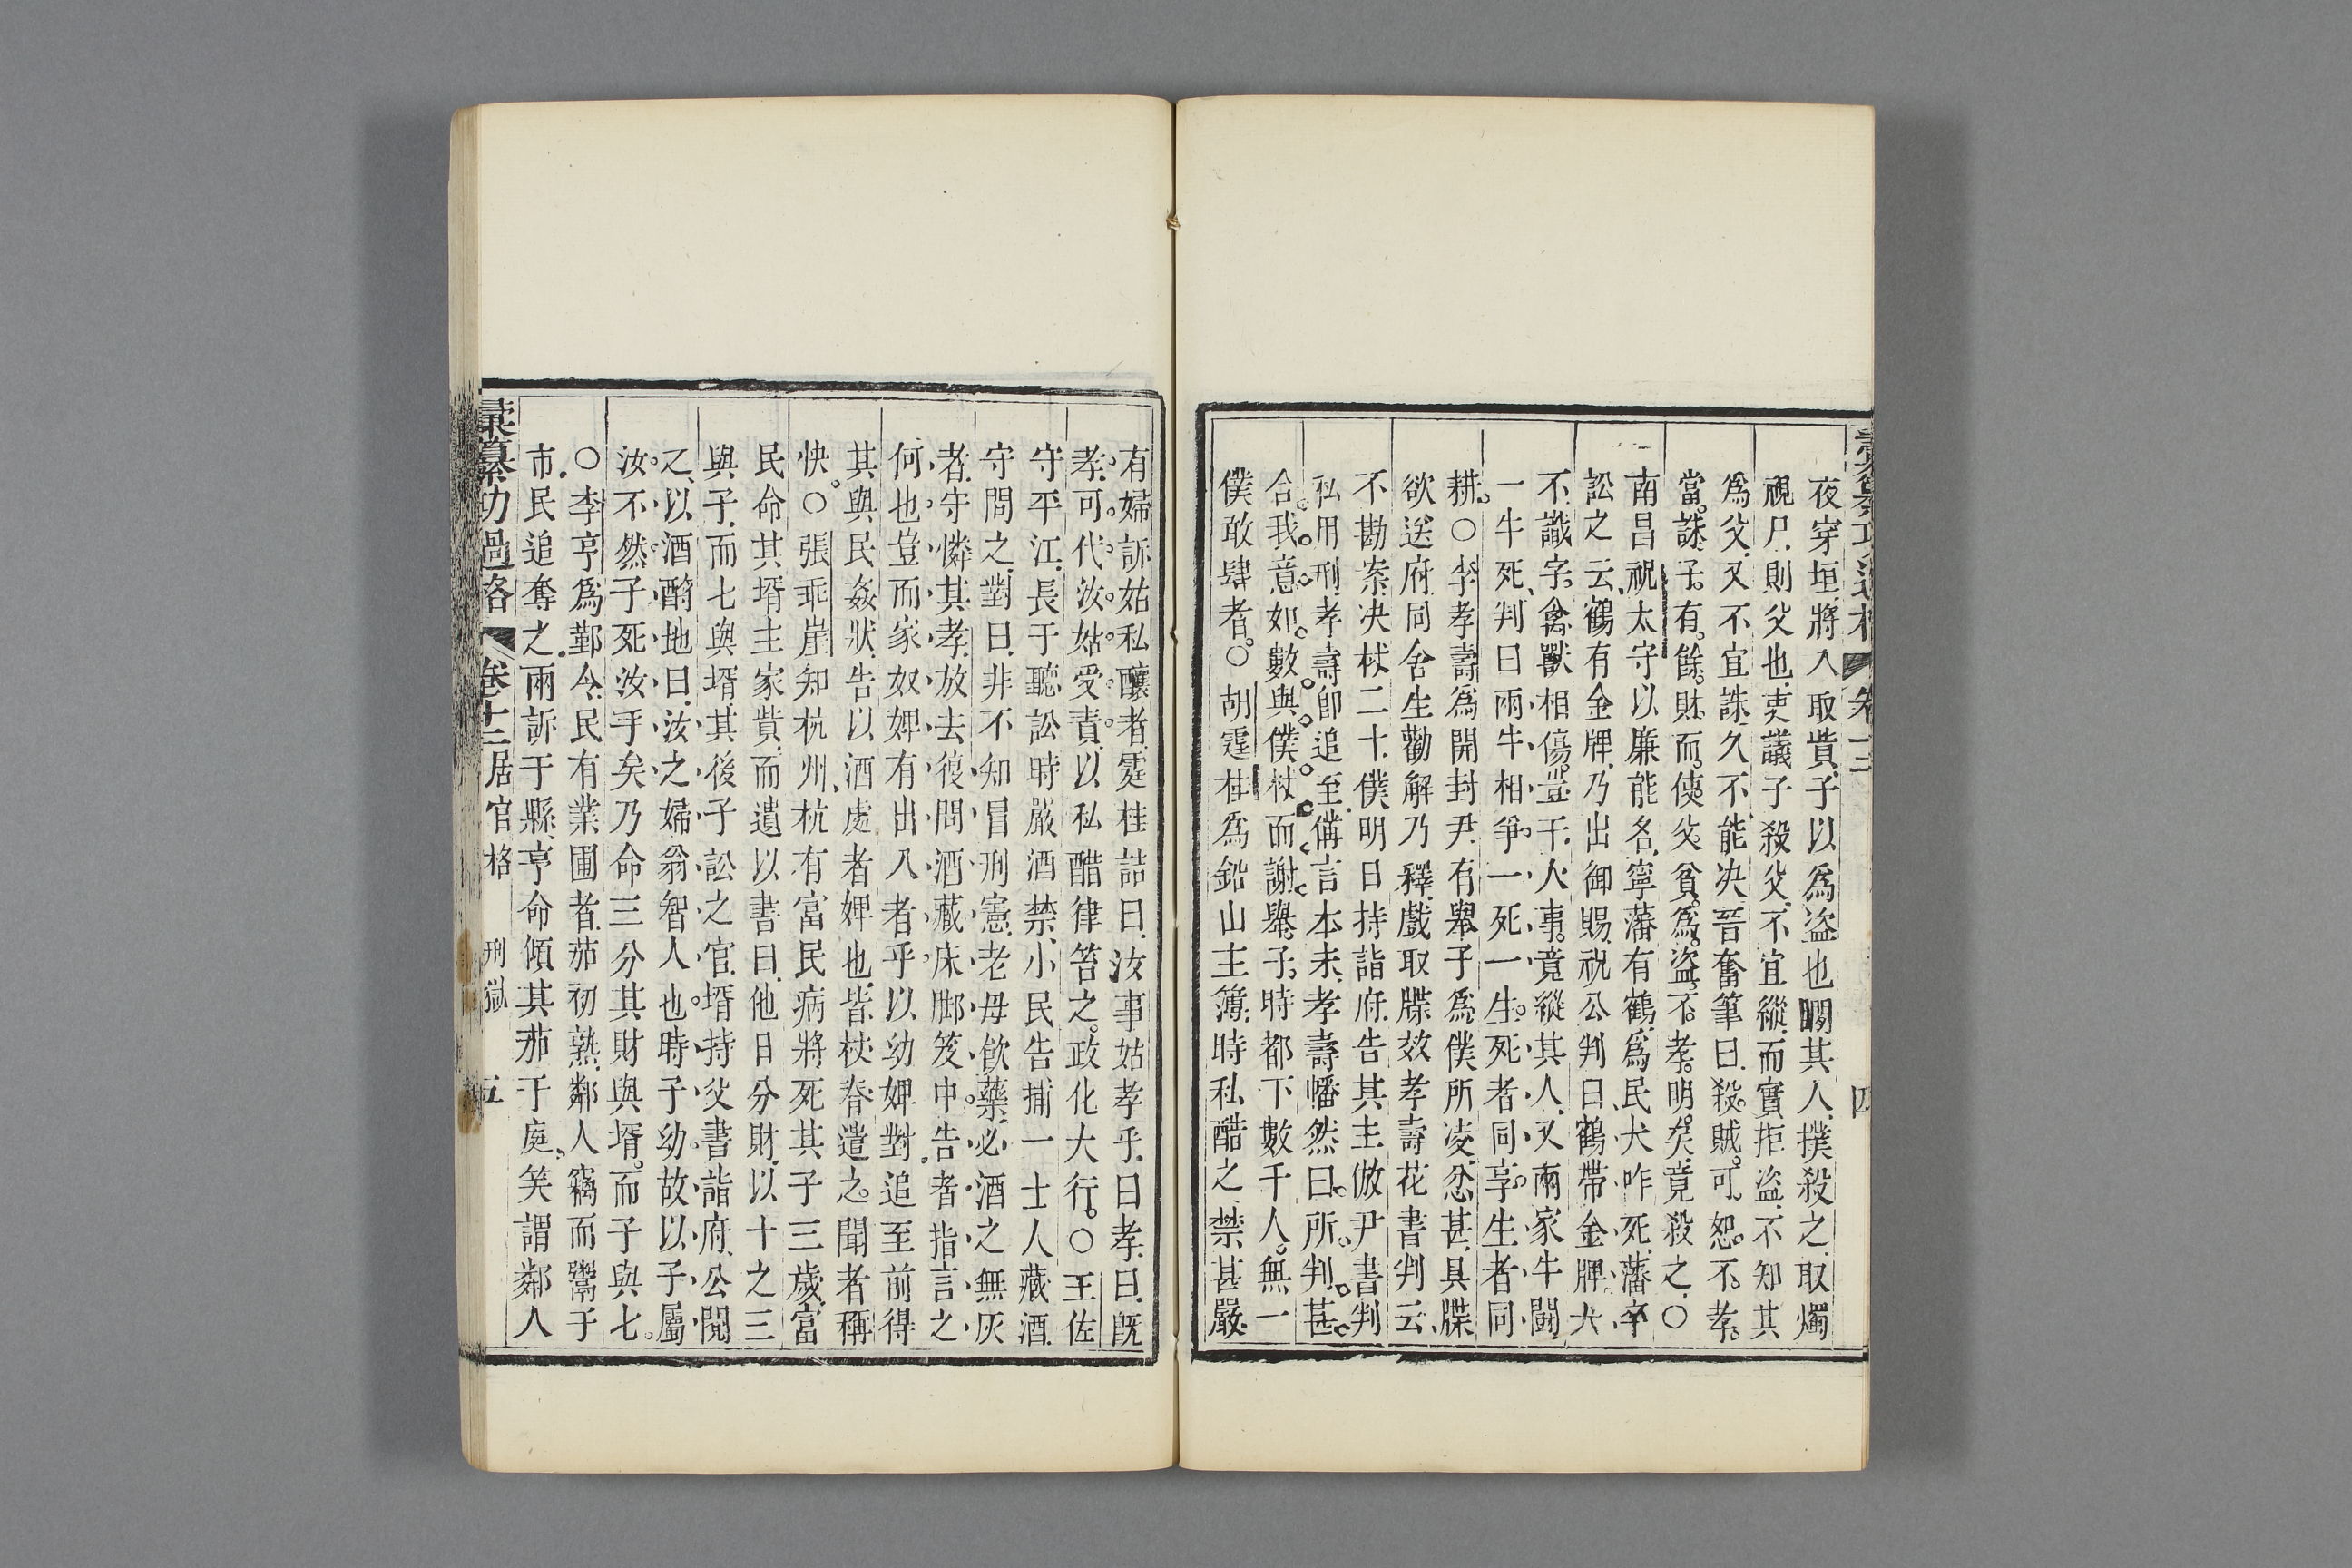 夜穿垣將入取貲子以為盜也瞷其人撲殺之取燭
視尸則父也吏議子殺父不宜縱而實拒盜不知其
為父又不宜誅久不能决晉奮筆曰殺賊可恕不孝
當誅子有餘財而使父貧為盜不孝明矣竟殺之○
南昌祝太守以廉能名寧藩有鶴為民犬咋死藩卒
訟之云鶴有金牌乃出御賜祝公判曰鶴帶金牌犬
不識字禽獸相傷豈干人事竟縱其人又兩家牛鬪
一牛死判曰兩牛相爭一死一生死者同享生者同
耕○李孝壽為開封尹有舉子為僕所凌忿甚具牒
欲送府同舍生勸解乃釋戲取牒效孝壽花書判云
不勘案决杖二十僕明日持詣府告其主倣尹書判
私用刑孝壽卽追至備言本末孝壽幡然曰所判甚
合我意如數與僕杖而謝舉子時都下數千人無一
僕敢肆者○胡霆桂為鉛山主簿時私酷之禁甚嚴
有婦訴姑私釀者霆桂詰曰汝事姑孝乎曰孝曰既
孝可代汝姑受責以私醋律笞之政化大行○王佐
守平江長于聽訟時嚴酒禁小民告捕一士人藏酒
守問之對曰非不知冒刑憲老母飲藥必酒之無灰
者守憐其孝放去復問酒藏床脚笈中告者指言之
何也豈而家奴婢有出入者乎以幼婢對追至前得
其與民姦狀告以酒處者婢也皆杖脊遣之聞者稱
快○張乖崖知杭州杭有富民病將死其子三歲富
民命其壻主家貲而遺以書曰他日分財以十之三
與子而七與壻其後子訟之官壻持父書詣府公閱
之以酒酹地曰汝之婦翁智人也時子幼故以子屬
汝不然子死汝手矣乃命三分其財與壻而子與七
○李亨為鄞令民有業圃者茄初熟鄰人竊而鬻于
市民追奪之兩訴于縣亨命傾其茄于庭笑謂鄰人
彙纂功過格 卷十三居官格 刑獄 五